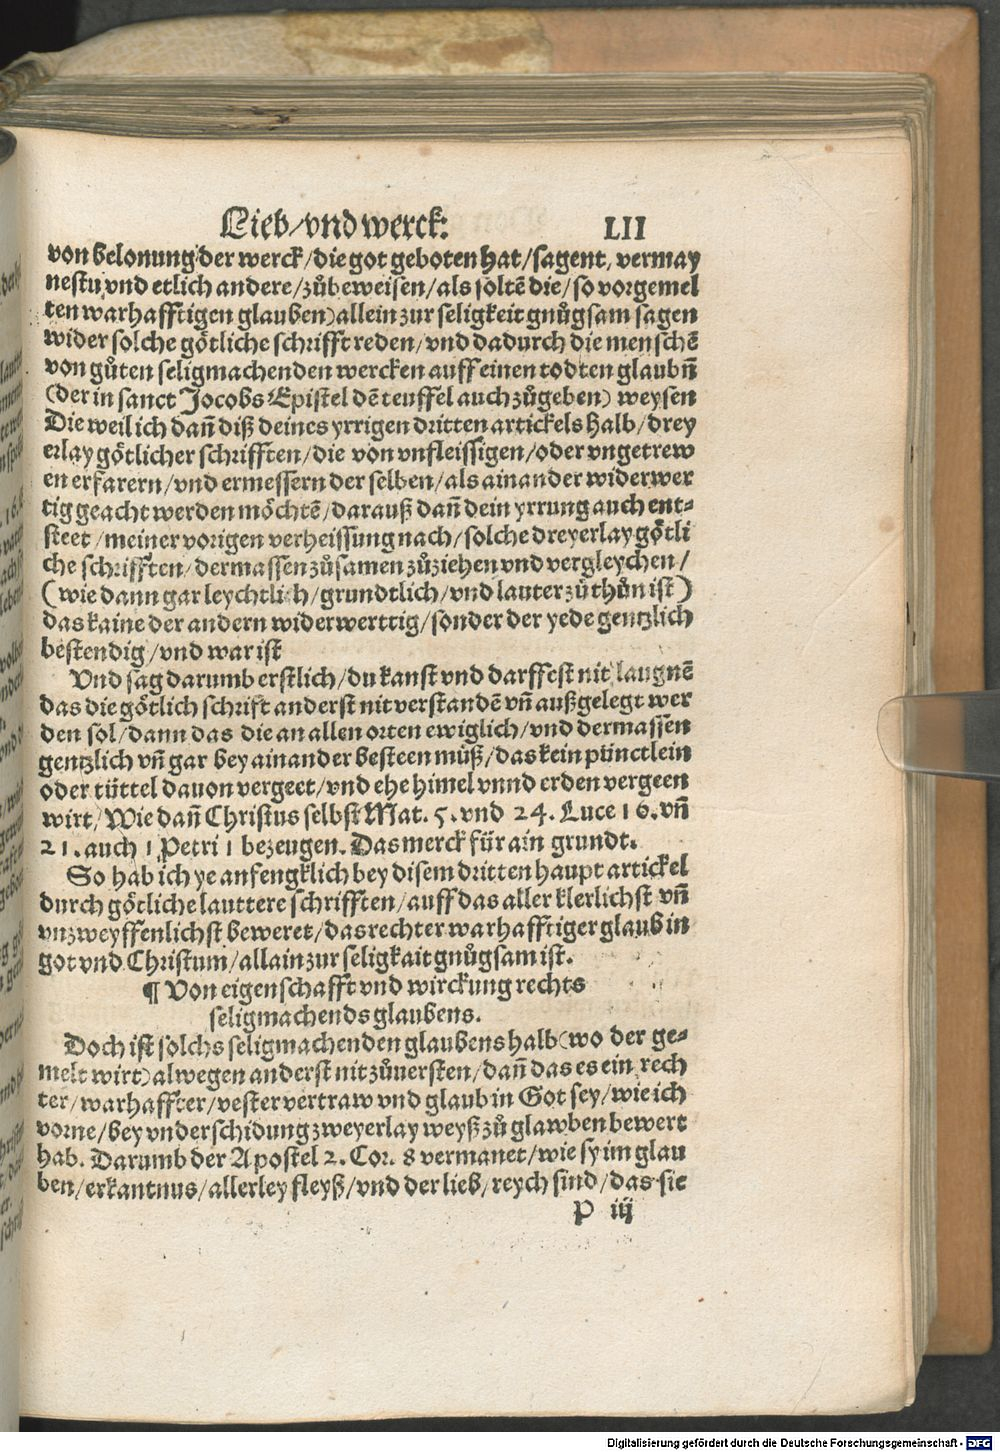 Lieb/vnd werck: LII
von belonung der werck/die got geboten hat/sagent, vermay
nestu vnd etlich andere/zůbeweisen/als soltē die/so vorgemel
ten warhafftigen glauben)allein zur seligkeit gnůgsam sagen
wider solche götliche schrifft reden/vnd dadurch die menschē
von gůten seligmachenden wercken auff einen todten glaubn̄
(der in sanct Jocobs Epistel dē teuffel auch zůgeben) weysen
Die weil ich dañ diß deines yrrigen dritten artickels halb/drey
erlay götlicher schrifften/die von vnfleissigen/oder vngetrew
en erfarern/vnd ermessern der selben/als ainander widerwer
tig geacht werden möchtē/darauß dañ dein yrrung auch ent-
steet/meiner vorigen verheissung nach/solche dreyerlay götli
che schrifften/dermassen zůsamen zůziehen vnd vergleychen/
(wie dann gar leychtlich/grundtlich/vnd lauter zů thůn ist)
das kaine der andern widerwerttig/sonder der yede gentzlich
bestendig/vnd war ist
Vnd sag darumb erstlich/du kanst vnd darffest nit laugnē
das die götlich schrift anderst nit verstandē vñ außgelegt wer
den sol/dann das die an allen orten ewiglich/vnd dermassen
gentzlich vñ gar bey ainander besteen müß/das kein pünctlein
oder tüttel dauon vergeet/vnd ehe himel vnnd erden vergeen
wirt/Wie dañ Christus selbst Mat. 5. vnd 24. Luce 16. vñ
21. auch 1. Petri 1 bezeugen. Das merck für ain grundt.
So hab ich ye anfengklich bey disem dritten haupt artickel
durch götliche lauttere schrifften/auff das aller klerlichst vñ
vnzweyffenlichst beweret/das rechter warhafftiger glaub in
got vnd Christum/allain zur seligkait gnůgsam ist.
¶ Von eigenschafft vnd wirckung rechts
seligmachends glaubens.
Doch ist solchs seligmachenden glaubens halb(wo der ge-
melt wirt)alwegen anderst nit zůuersten/dañ das es ein rech
ter/warhaffter/vester vertraw vnd glaub in Got sey/wie ich
vorne/bey vnderschidung zweyerlay weyß zů glawben bewert
hab. Darumb der Apostel 2. Cor. 8 vermanet/wie sy im glau
ben/erkantnus/allerley fleyß/vnd der lieb/reych sind/das sie
P iij
Digitalisierung gefördert durch die Deutsche Forschungsgemeinschaft - DFG